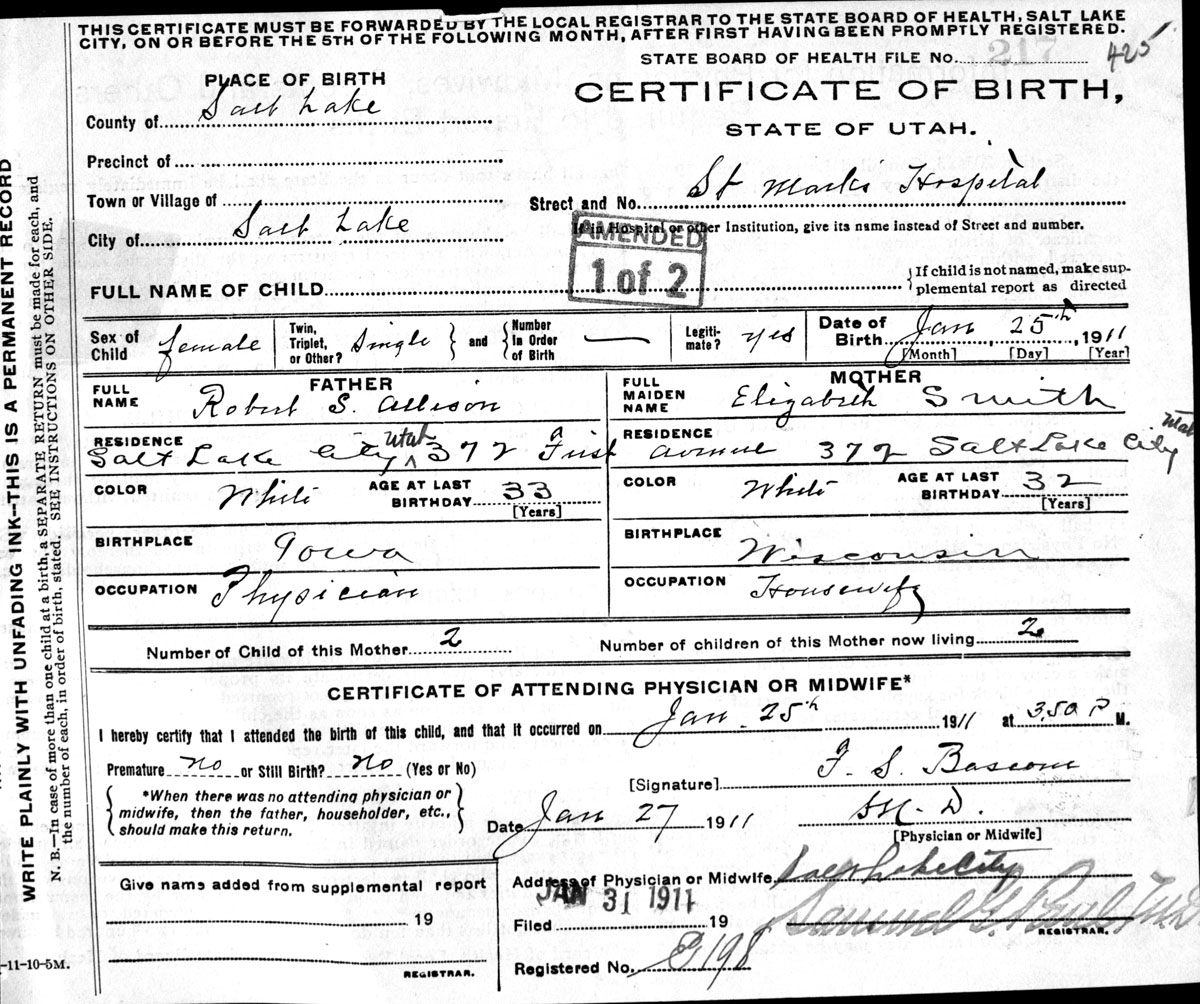 THIS CERTIFICATE MUST BE FORWARDED BY THE LOCAL REGISTRAR TO THE STATE BOARD OF HEALTH, SALT LAKE
CITY, ON OR BEFORE THE 5TH OF THE FOLLOWING MONTH, AFTER FIRST HAVING BEEN PROMPTLY REGISTERED.
STATE BOARD OF HEALTH FILE No. 217 425
PLACE OF BIRTH
CERTIFICATE OF BIRTH,
STATE OF UTAH.
County of Salt Lake
Precinct of
Town or Village of
Street and No. St Marks Hospital
City of Salt Lake
If in Hospital or other Institution, give its name instead of Street and number.
AMENDED
1 of 2
FULL NAME OF CHILD
If child is not named, make sup-
plemental report as directed
Sex of Child female
Twin, Triplet, or Other? Single
and Number In Order of Birth —
Legiti- mate? yes
Date of Birth Jan 25th, 1911
[Month] [Day] [Year]
FATHER
FULL NAME Robert S. Allison
RESIDENCE Salt Lake City Utah 372 First
COLOR White AGE AT LAST BIRTHDAY 33
[Years]
BIRTHPLACE Iowa
OCCUPATION Physician
MOTHER
FULL MAIDEN NAME Elizabeth Smith
RESIDENCE Avenue 372 Salt Lake City Utah
COLOR White AGE AT LAST BIRTHDAY 32
[Years]
BIRTHPLACE Wisconsin
OCCUPATION Housewife
Number of Child of this Mother 2
Number of children of this Mother now living 2
CERTIFICATE OF ATTENDING PHYSICIAN OR MIDWIFE*
I hereby certify that I attended the birth of this child, and that it occurred on Jan. 25th, 1911 at 3,50 P M.
Premature no or Still Birth? No (Yes or No)
[Signature] F. S. Bascom
*When there was no attending physician or
midwife, then the father, householder, etc.,
should make this return.
Date Jan 27 1911
M. D.
[Physician or Midwife]
Give name added from supplemental report
19
REGISTRAR.
Address of Physician or Midwife Salt Lake City
JAN 31 1911
Filed 19
Samuel G. Paul
REGISTRAR.
Registered No. B198
WRITE PLAINLY WITH UNFADING INK—THIS IS A PERMANENT RECORD
N. B.—In case of more than one child at a birth, a SEPARATE RETURN must be made for each, and
the number of each, in order of birth, stated. SEE INSTRUCTIONS ON OTHER SIDE.
-11-10-5M.